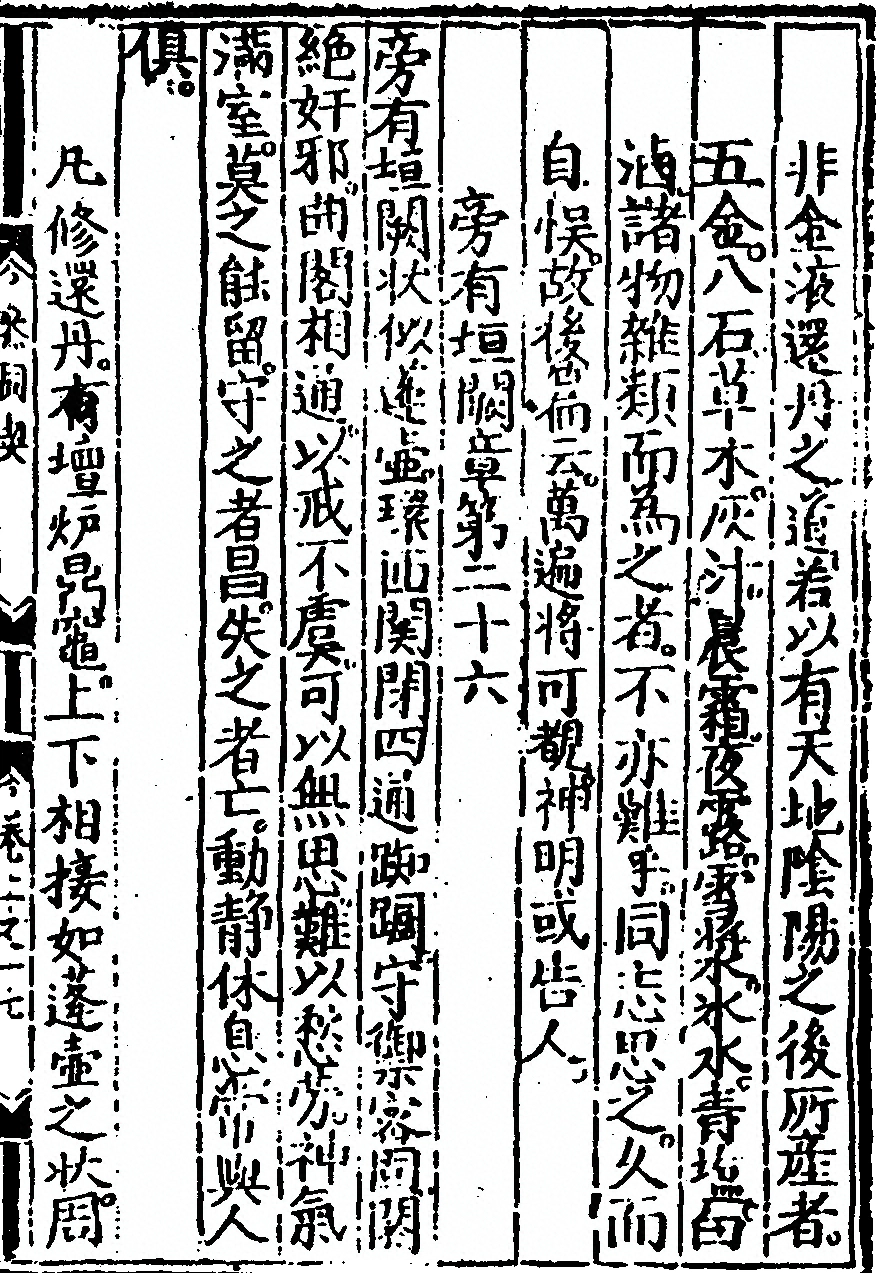 非金液還丹之道若以有天地陰陽之後所産者
五金八石草木灰汁晨霜夜露雪漿水氷水青塩
滷諸物雜類而為之者不亦難乎同志思之久而
自悞故後㫖云萬遍將可覩神明或告人
旁有垣闕章第二十六
旁有垣闕狀似蓬壺環匝関閉四通踟躅守禦宻固闕
絶奸邪曲閣相通以戒不虞可以無思難以愁勞神氣
滿室莫之能留守之者昌失之者亡動静休息常與人
俱
凡修還丹有壇炉鼎竈上下相接如蓬壺之狀周